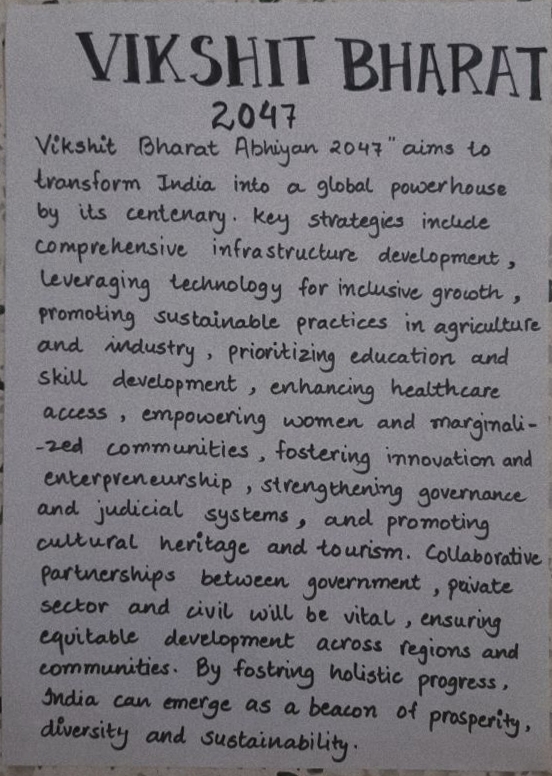 VIKSHIT BHARAT
2047
Vikshit Bharat Abhiyan 2047" aims to
transform India into a global powerhouse
by its centenary. Key strategies include
comprehensive infrastructure development,
leveraging technology for inclusive growth,
promoting sustainable practices in agriculture
and industry, prioritizing education and
skill development, enhancing healthcare
access, empowering women and marginali-
-zed communities, fostering innovation and
enterpreneurship, strengthening governance
and judicial systems, and promoting
cultural heritage and tourism. Collaborative
partnerships between government, private
sector and civil will be vital, ensuring
equitable development across regions and
communities. By fostring holistic progress,
India can emerge as a beacon of prosperity,
diversity and sustainability.